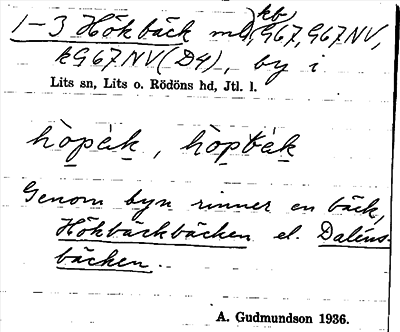 1-3 Hökbäck ml), kb, G67, G67NV,
kG67NV (D4), by i
Lits sn, Lits o. Rödöns hd, Jtl. l.
hòpák, hòpbák
Genom byn rinner en bäck,
Hökbäckbäcken el. Daléns-
bäcken.
A. Gudmundson 1936.